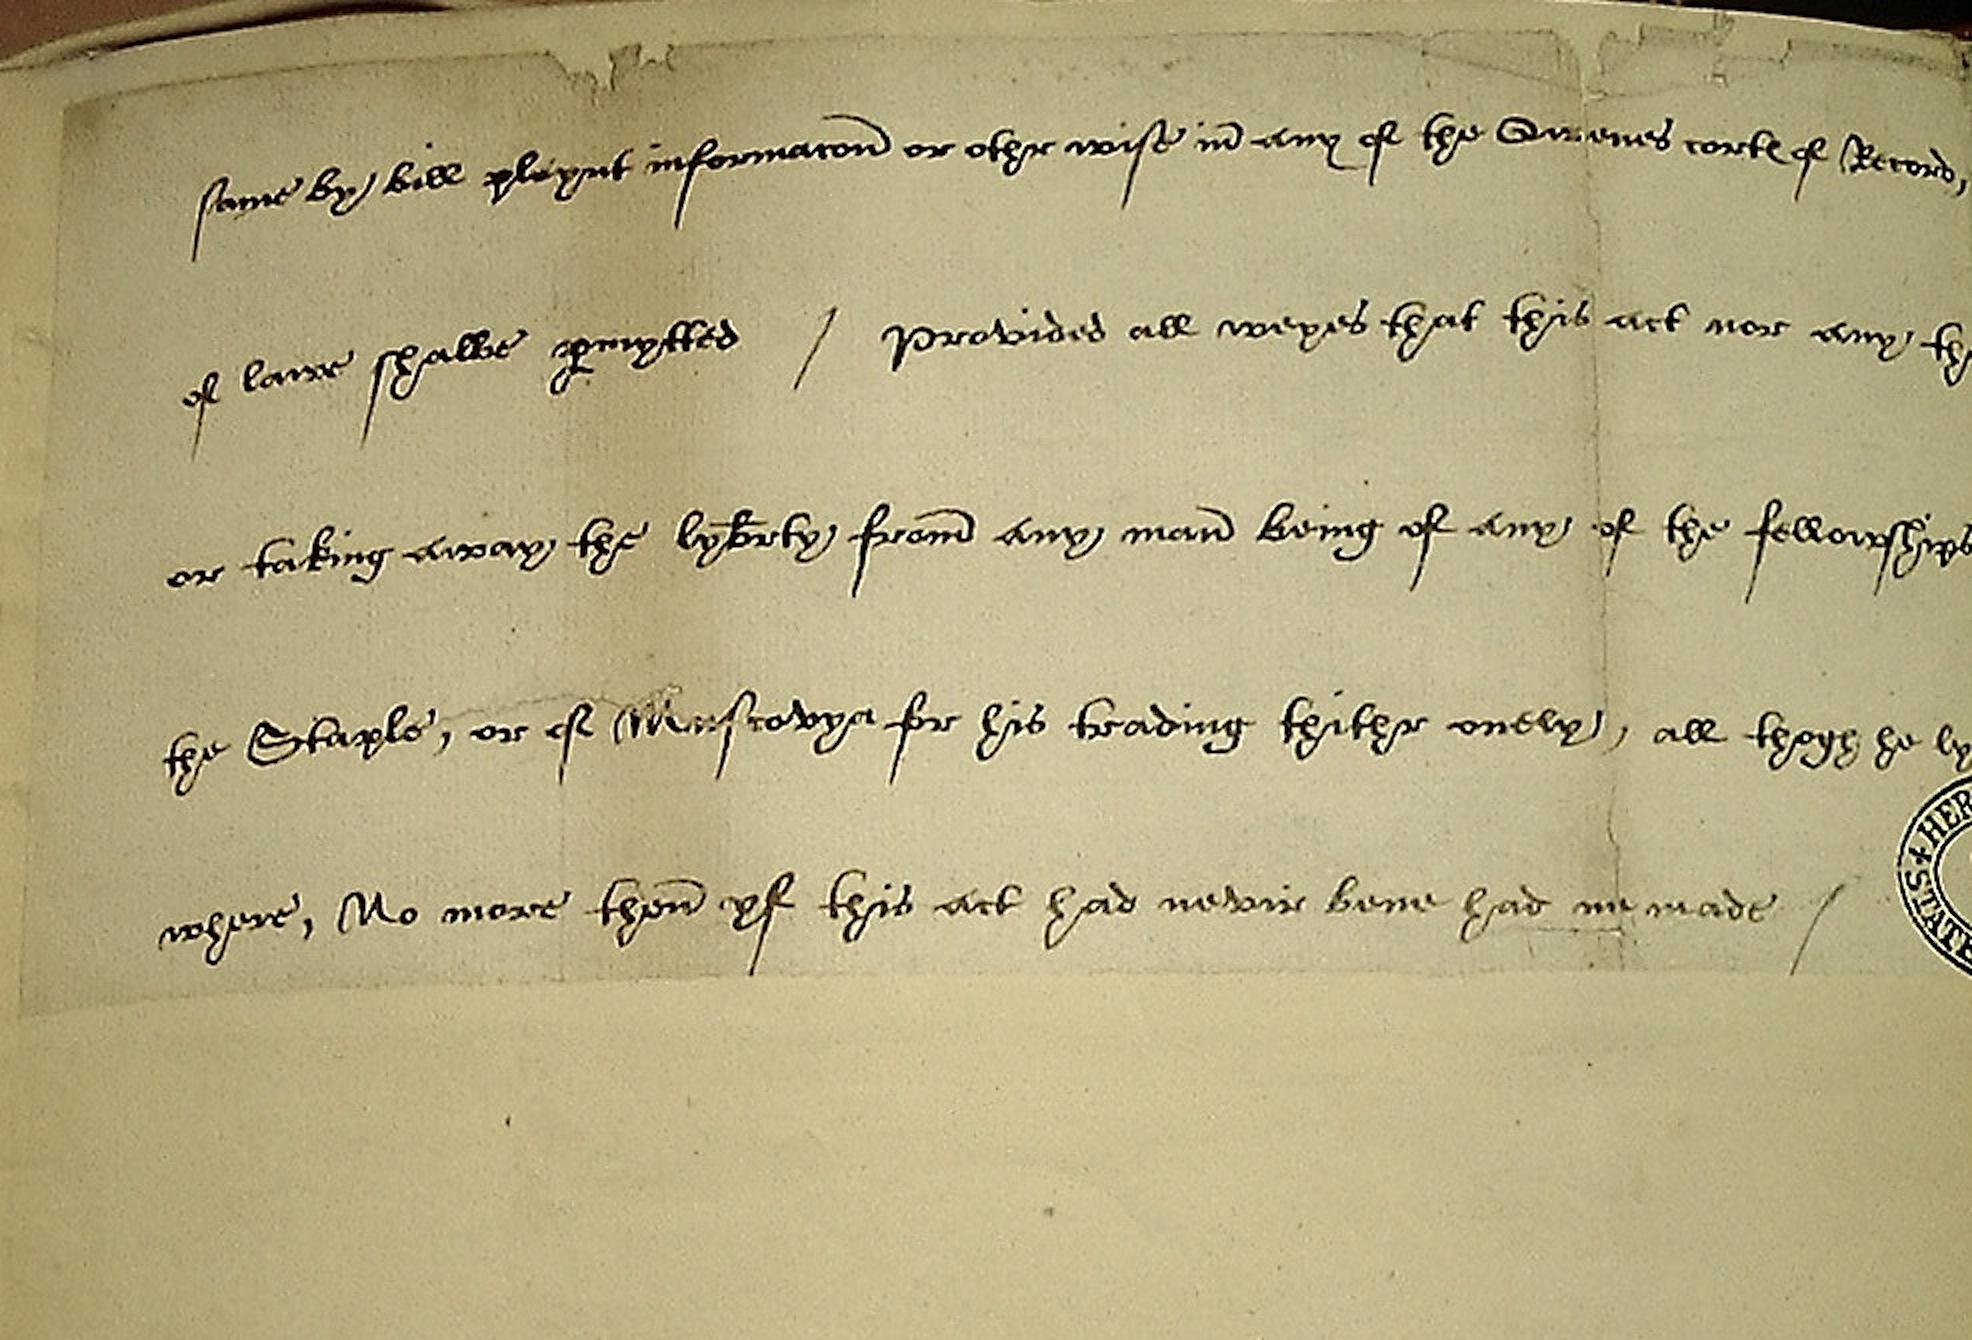 same by bill playnt informacon or othr wise in any of the Qwenes corte of Record,
of lawe shalbe pmytted / Provided all weyes that this act nor any th
or taking away the lybrty from any man being of any of the fellowships
the Staple, or of Muscovya for his trading thithr onely, all thogh he ly
where, No more then yf this act had nevir bene had ne made /
HER
STATE